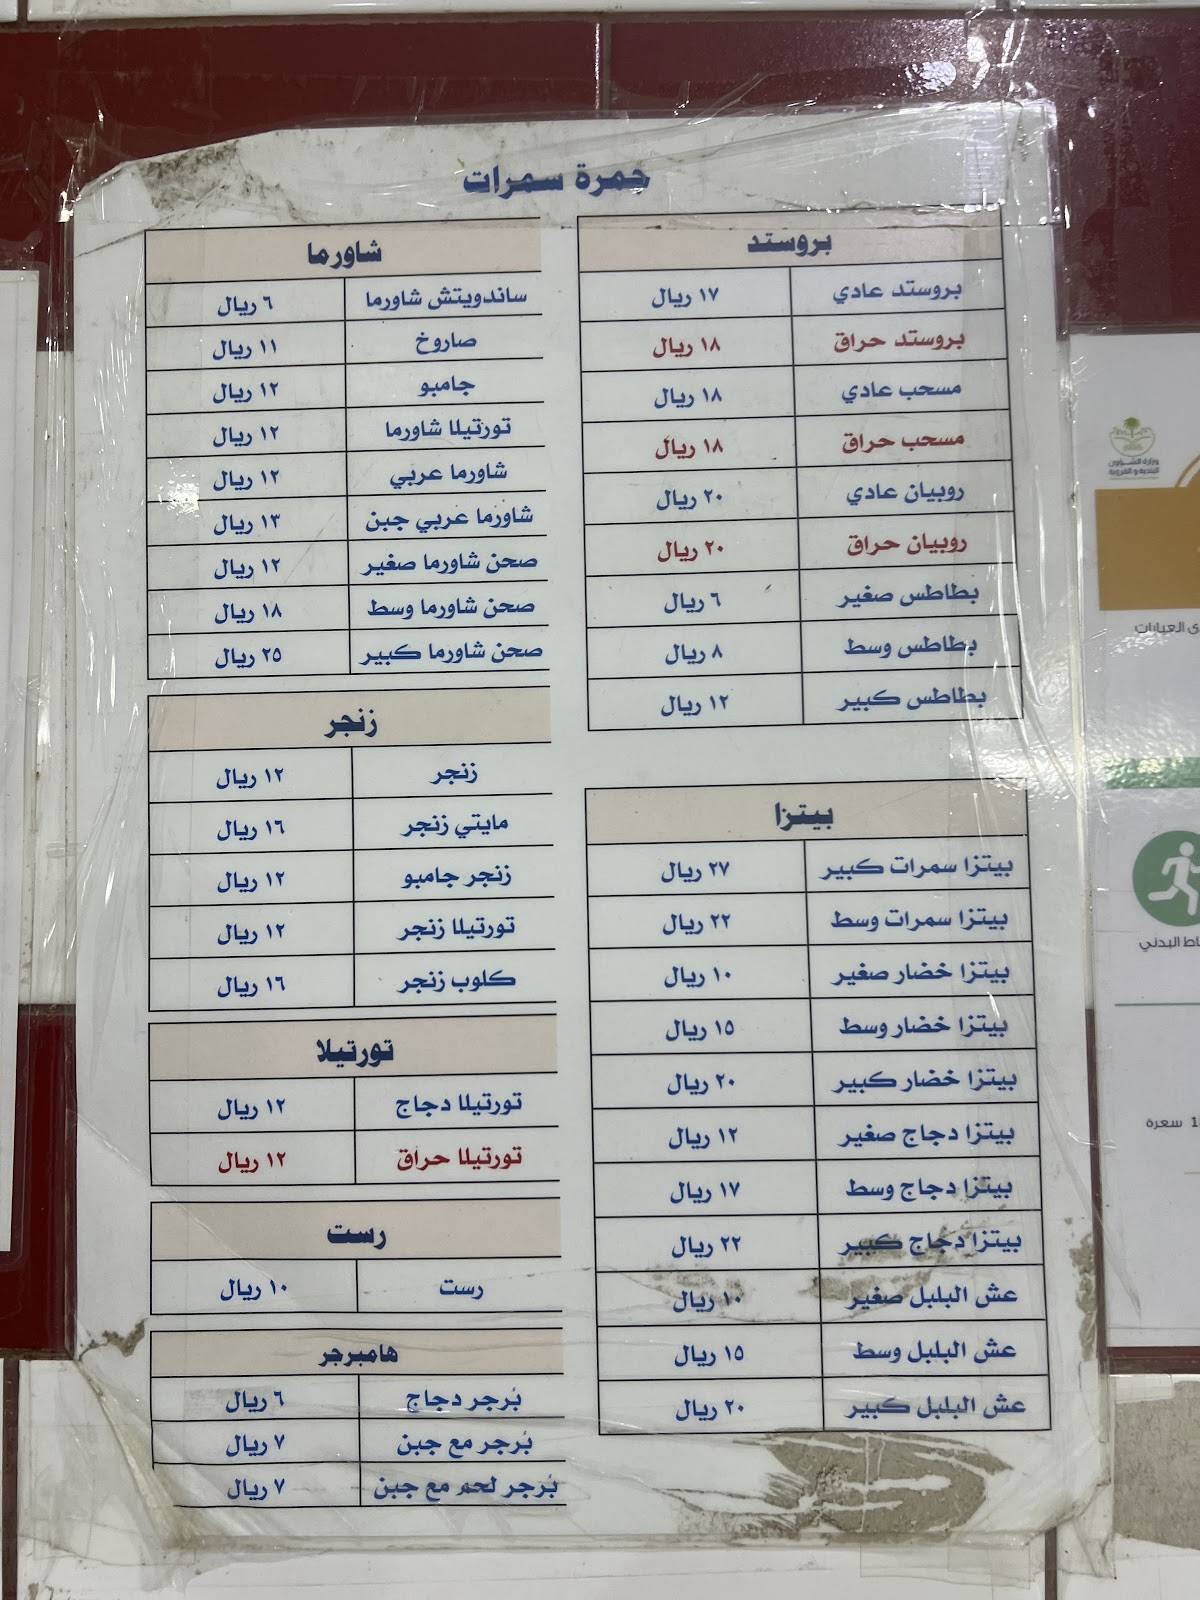 جمرة سمرات
بروستد
بروستد عادي ١٧ ريال
بروستد حراق ١٨ ريال
مسحب عادي ١٨ ريال
مسحب حراق ١٨ ريال
روبيان عادي ٢٠ ريال
روبيان حراق ٢٠ ريال
بطاطس صغير ٦ ريال
بطاطس وسط ٨ ريال
بطاطس كبير ١٢ ريال
بيتزا
بيتزا سمرات كبير ٢٧ ريال
بيتزا سمرات وسط ٢٢ ريال
بيتزا خضار صغير ١٠ ريال
بيتزا خضار وسط ١٥ ريال
بيتزا خضار كبير ٢٠ ريال
بيتزا دجاج صغير ١٢ ريال
بيتزا دجاج وسط ١٧ ريال
بيتزا دجاج كبير ٢٢ ريال
عش البلبل صغير ١٠ ريال
عش البلبل وسط ١٥ ريال
عش البلبل كبير ٢٠ ريال
شاورما
ساندويتش شاورما ٦ ريال
صاروخ ١١ ريال
جامبو ١٢ ريال
تورتيلا شاورما ١٢ ريال
شاورما عربي ١٢ ريال
شاورما عربي جبن ١٣ ريال
صحن شاورما صغير ١٢ ريال
صحن شاورما وسط ١٨ ريال
صحن شاورما كبير ٢٥ ريال
زنجر
زنجر ١٢ ريال
مايتي زنجر ١٦ ريال
زنجر جامبو ١٢ ريال
تورتيلا زنجر ١٢ ريال
كلوب زنجر ١٦ ريال
تورتيلا
تورتيلا دجاج ١٢ ريال
تورتيلا حراق ١٢ ريال
رست
رست ١٠ ريال
هامبرجر
بُرجر دجاج ٦ ريال
بُرجر مع جبن ٧ ريال
بُرجر لحم مع جبن ٧ ريال
وزارة الشؤون
البلدية و القروية
العبارات
البدني
سعرة